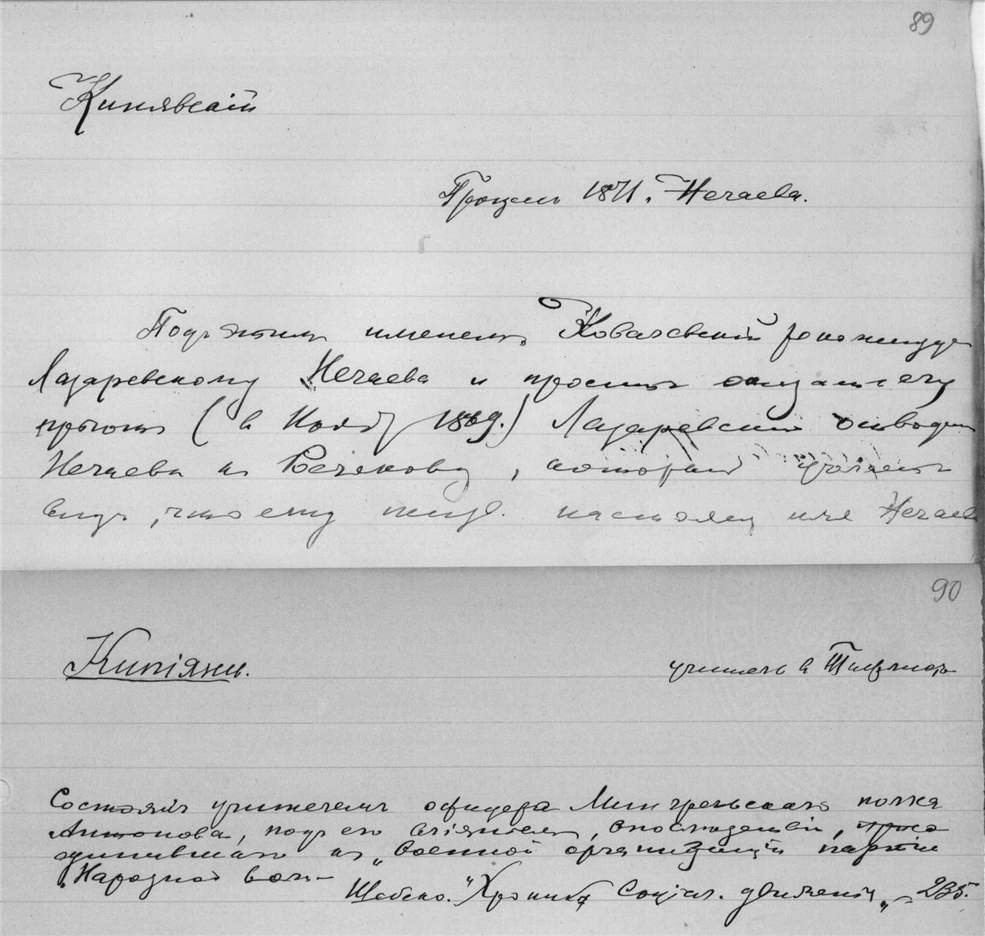 89
Кинявскій
Процессъ 1871. Нечаева.
Подъ этимъ именемъ Ковалевскій рекоменду
Лазаревскому Нечаева и проситъ оказать ему
пріютъ (въ Нояб 1869.) Лазаревскій
Нечаева къ, который
видъ, что ему настоящ имя Нечаев
90
Кипіяни.
учитель въ Тифлисѣ
Состоялъ учителемъ офицера Мингрельскаго полка
Антонова, подъ его вліяніемъ, впослѣдствіи, присо
единившаго къ „военной организаціи партіи
„Народной воли
Шебеко. „Хроника Соціал. движенія„ – 235.